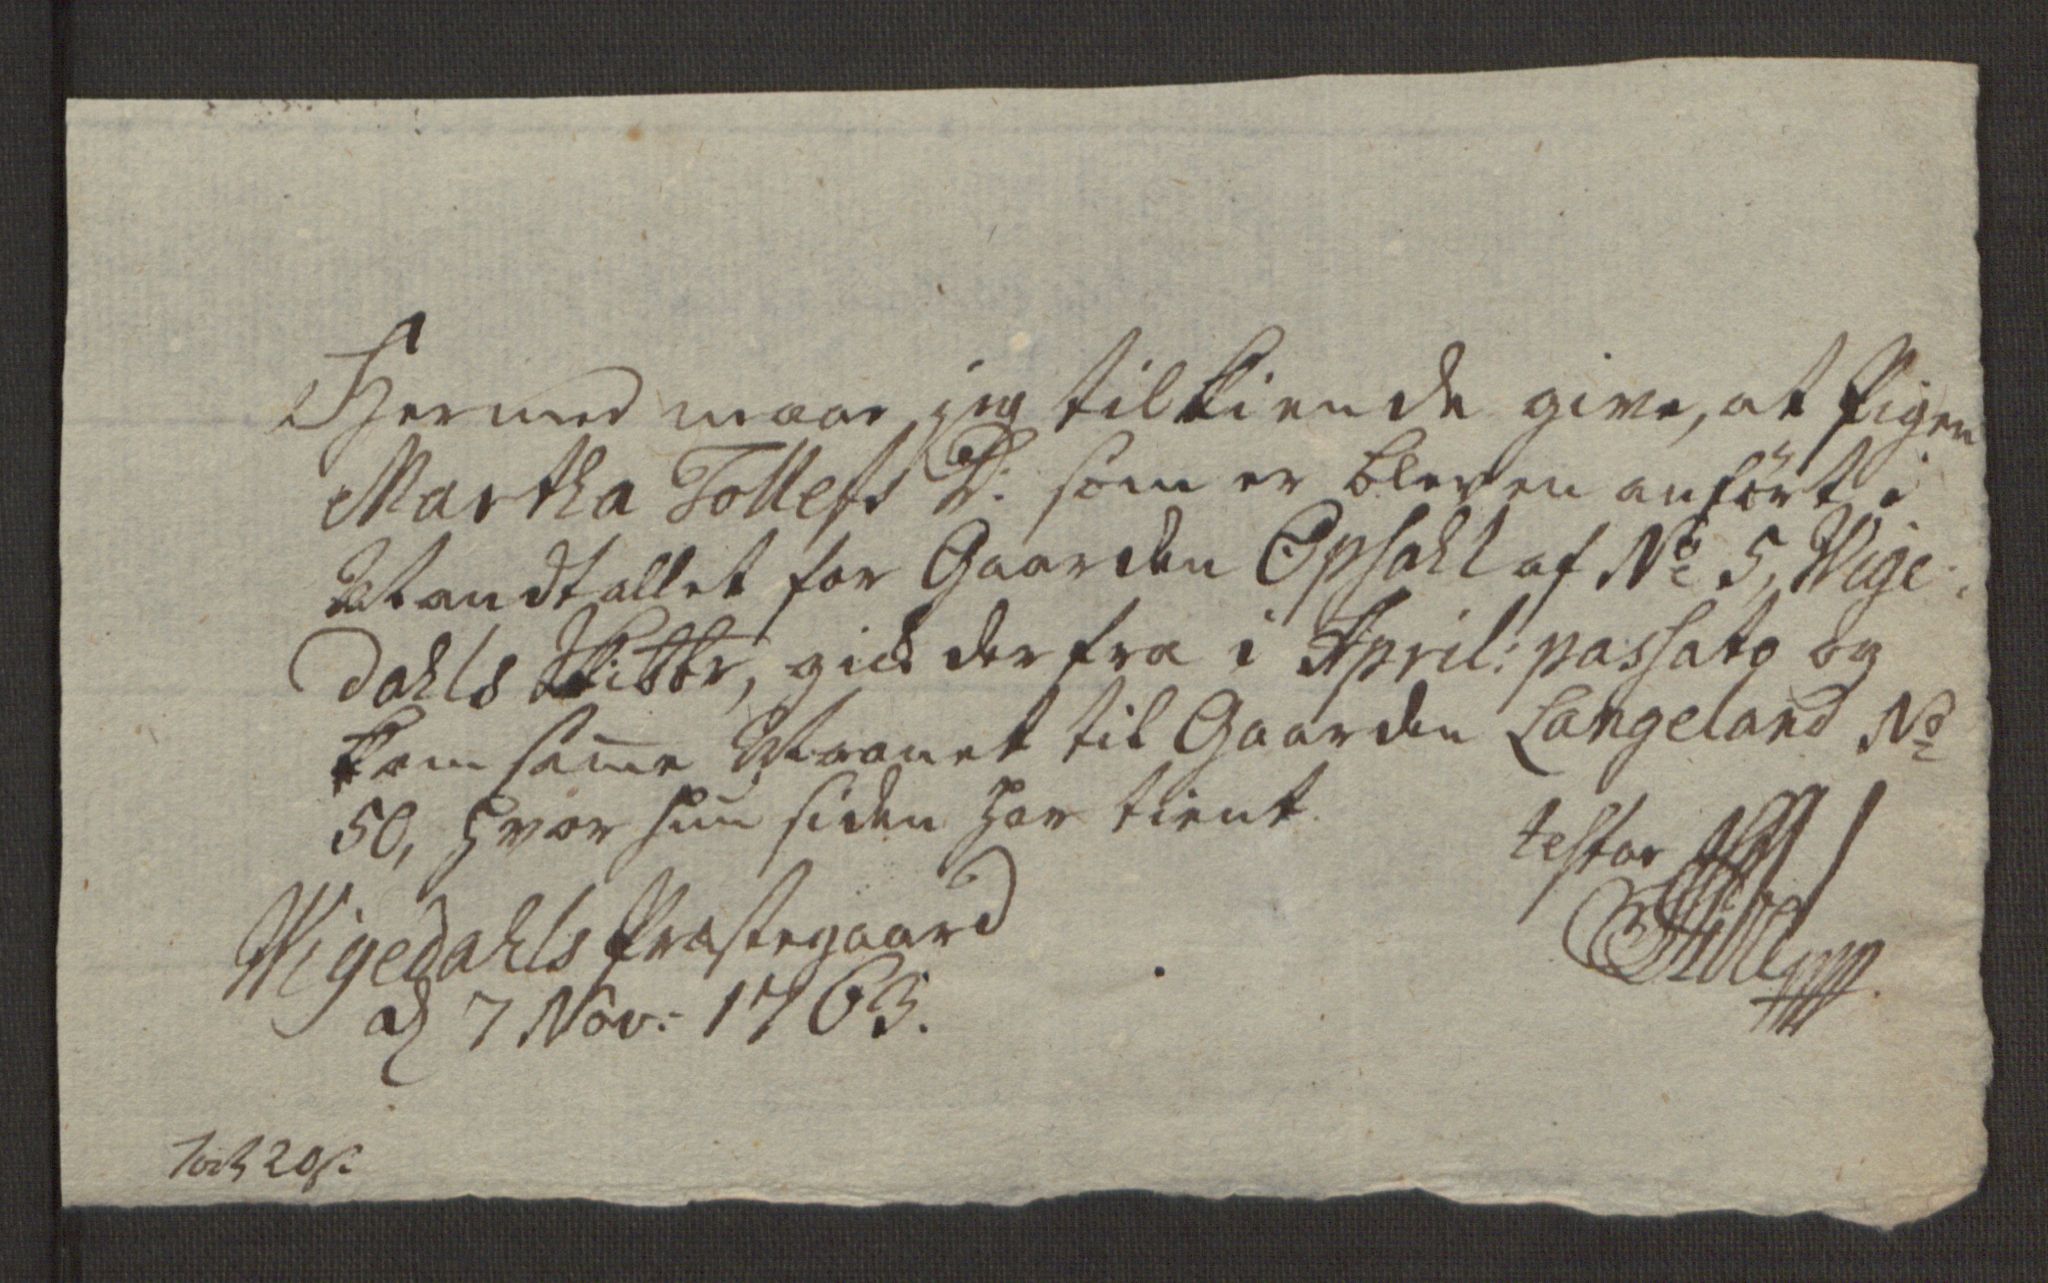 Hermed maae jeg tilkiende give, at Pigen
Martha Tollefs D: som er bleven anført i
Mandtallet for Gaarden Opsahl af No 5, Wige-
dahls Skibbr, gick derfra i April: passato og
kom same Maanet til Gaarden Langeland No
50, hvor hun siden har tient.
testor
Wigedahls Præstegaard
d 7 Nov: 1763.
20 s: